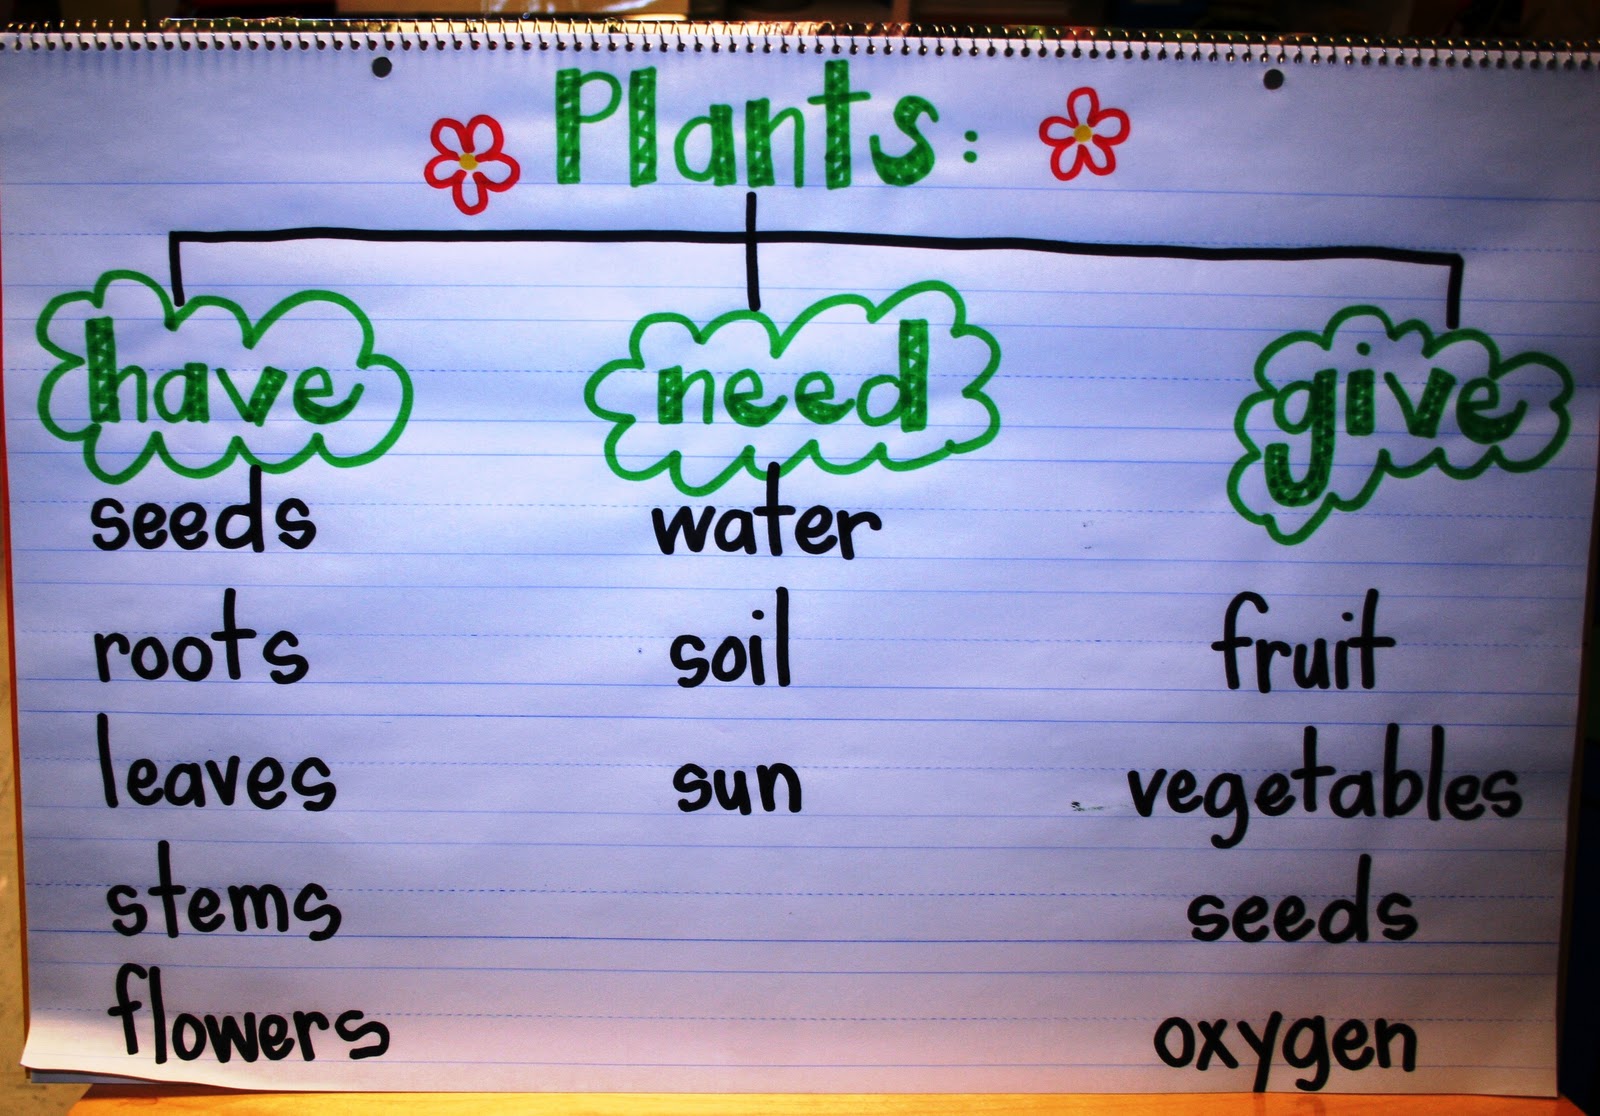 Plants:
have
need
give
seeds
roots
leaves
stems
flowers
water
soil
sun
fruit
vegetables
seeds
oxygen